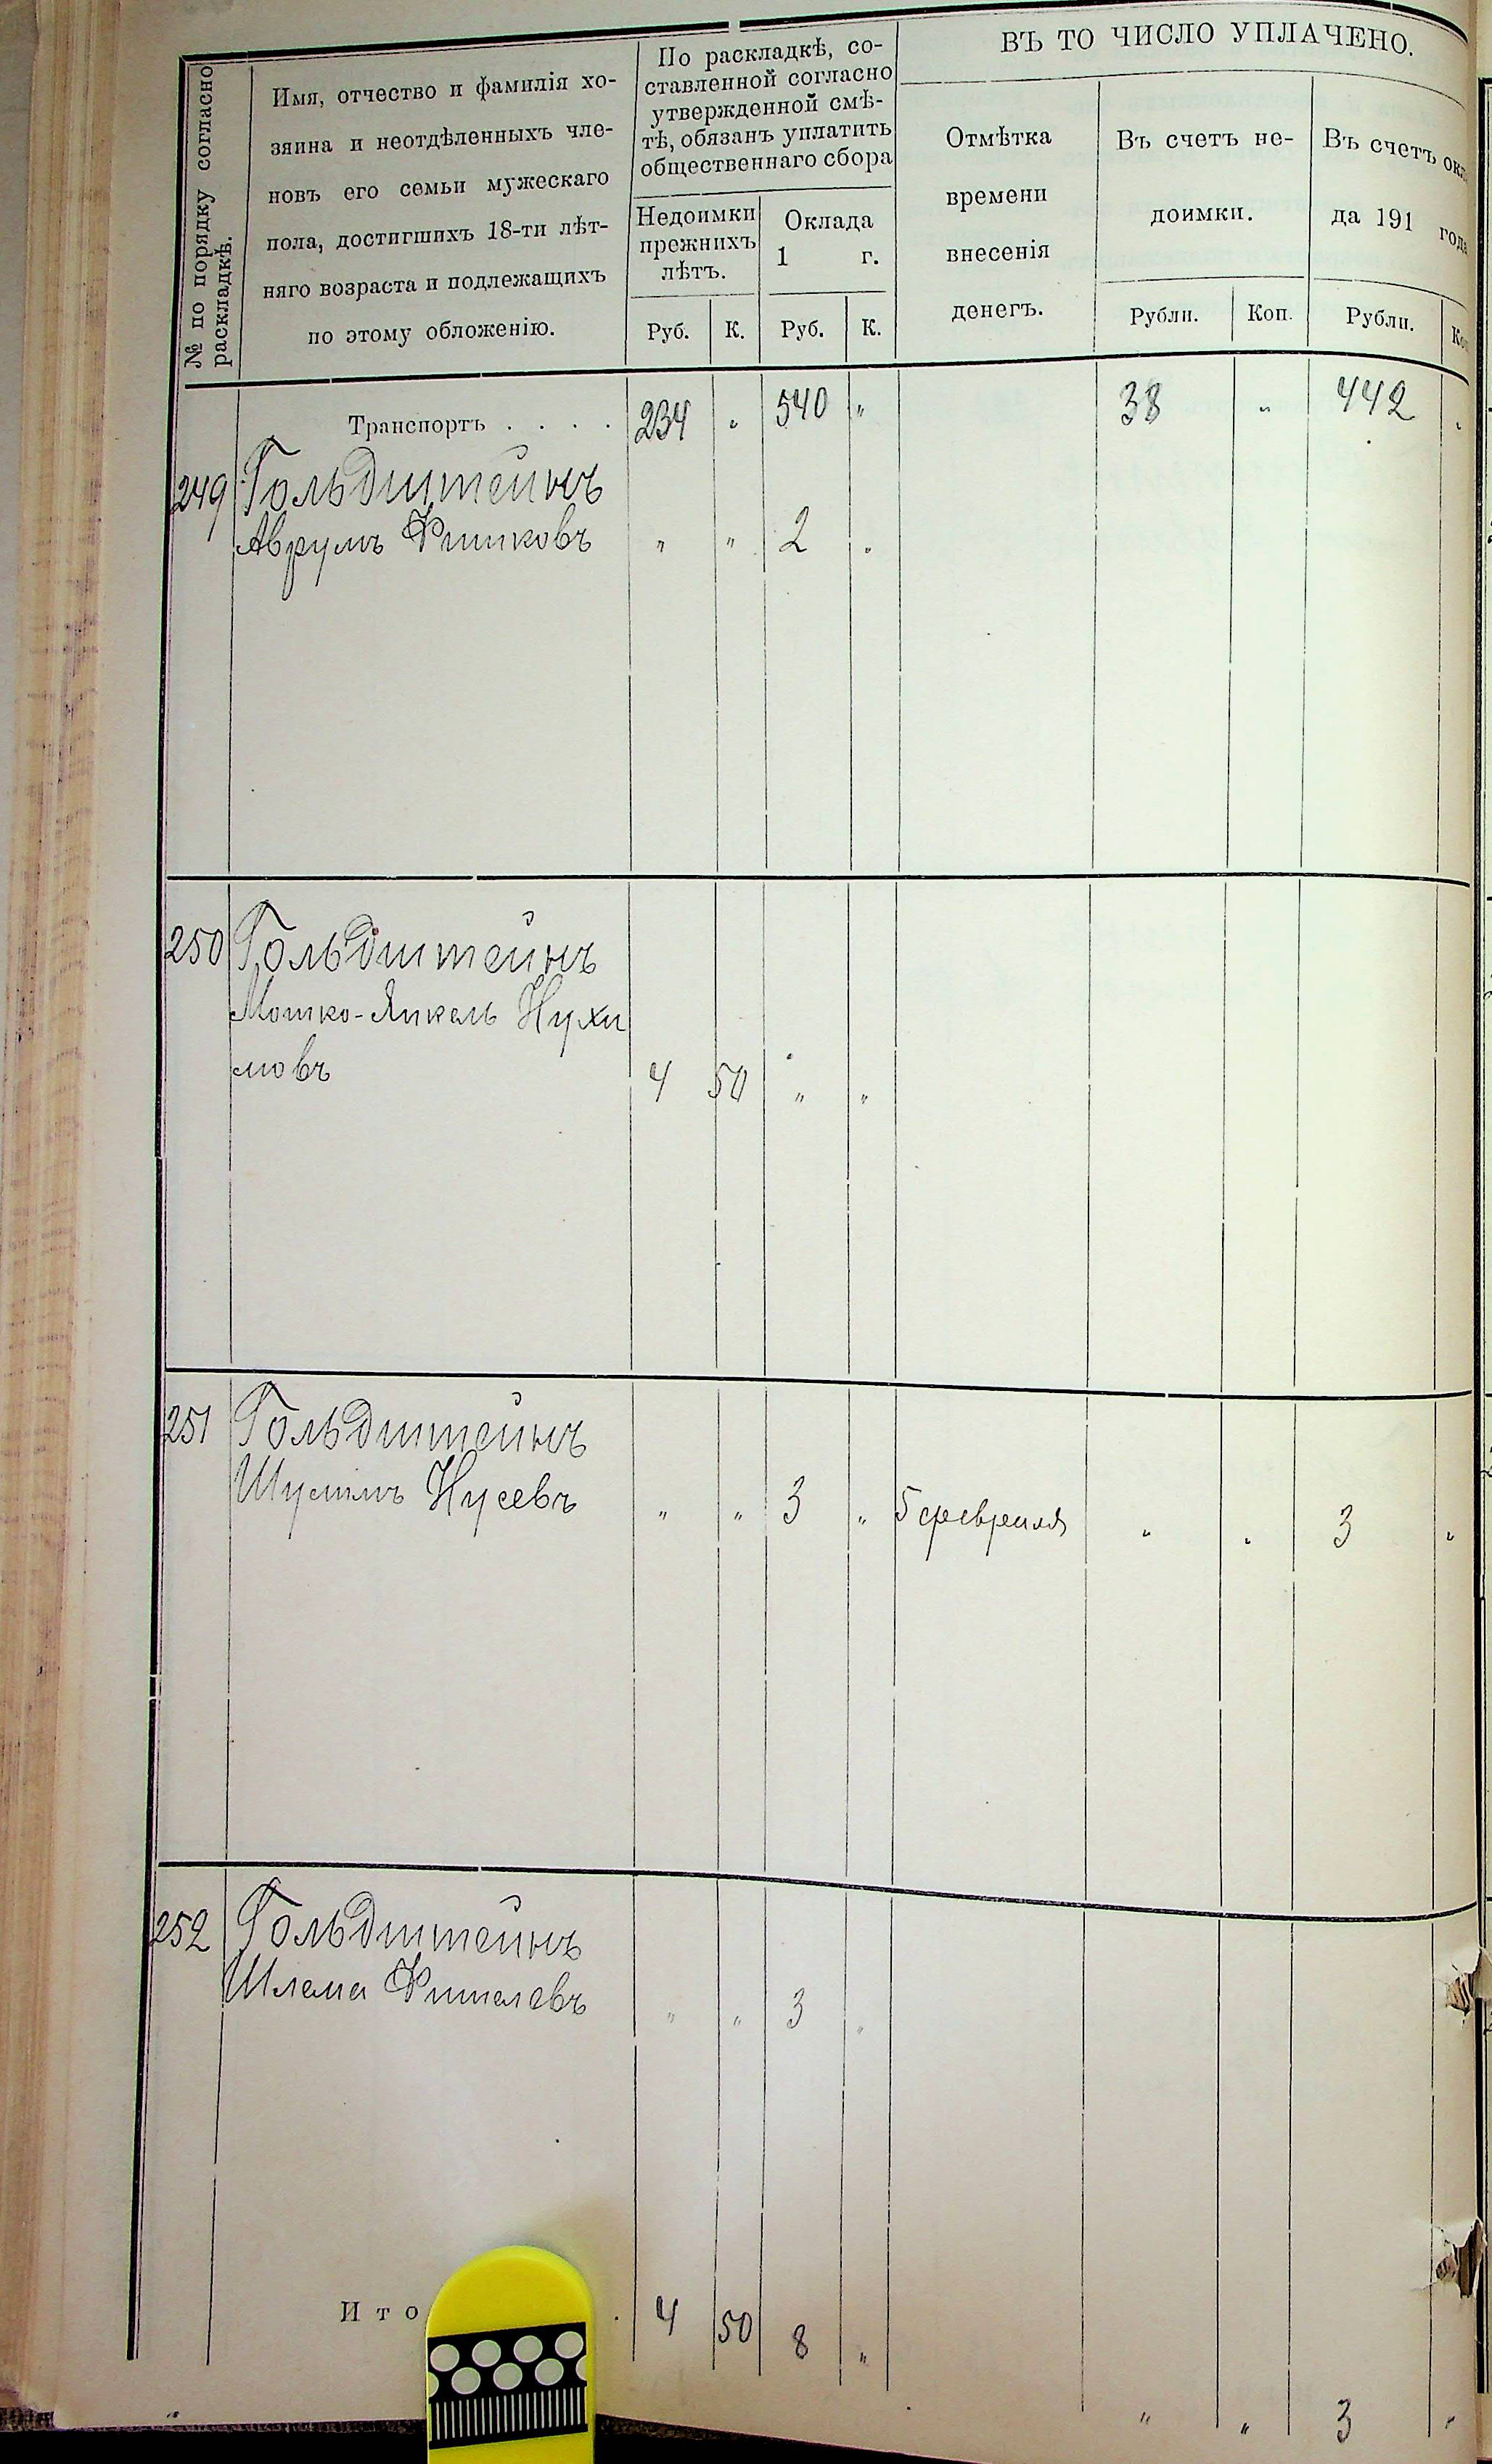 № по порядку согласно
раскладкѣ.
Имя, отчество и фамилія хо-
зяина и неотдѣленныхъ чле-
новъ его семьи мужескаго
пола, достигшихъ 18-ти лѣт-
няго возраста и подлежащихъ
по этому обложенію.
По раскладкѣ, со-
ставленной согласно
утвержденной смѣ-
тѣ, обязанъ уплатить
общественнаго сбора
Недоимки
прежнихъ
лѣтъ.
Оклада
1 г.
Руб. К. Руб. К.
ВЪ ТО ЧИСЛО УПЛАЧЕНО.
Отмѣтка
времени
внесенія
денегъ.
Въ счетъ не-
доимки.
Рубли. Коп.
Въ счетъ окла
да 191 года
Рубли. Коп
Транспортъ . . . . 234 " 540 " 38 " 442 "
249 Гольдштейнъ
Аврумъ Фишковъ " " 2 "
250 Гольдштейнъ
Мошко-Янкель Нухи
мовъ 4 50 " "
251 Гольдштейнъ
Шулимъ Нусевъ " " 3 " 5 февраля " " 3 "
252 Гольдштейнъ
Шлема Фишелевъ " " 3 "
Ито . 4 50 8 "
" " 3 "